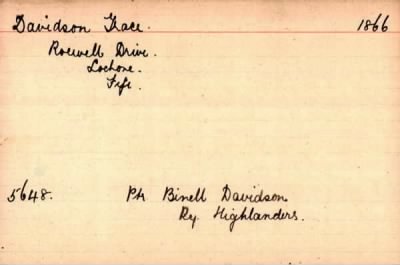 Davidson Grace. 1866
Rosewell Drive.
Lochore.
Fife.
5648. Pte Binell Davidson
Ry. Highlanders.